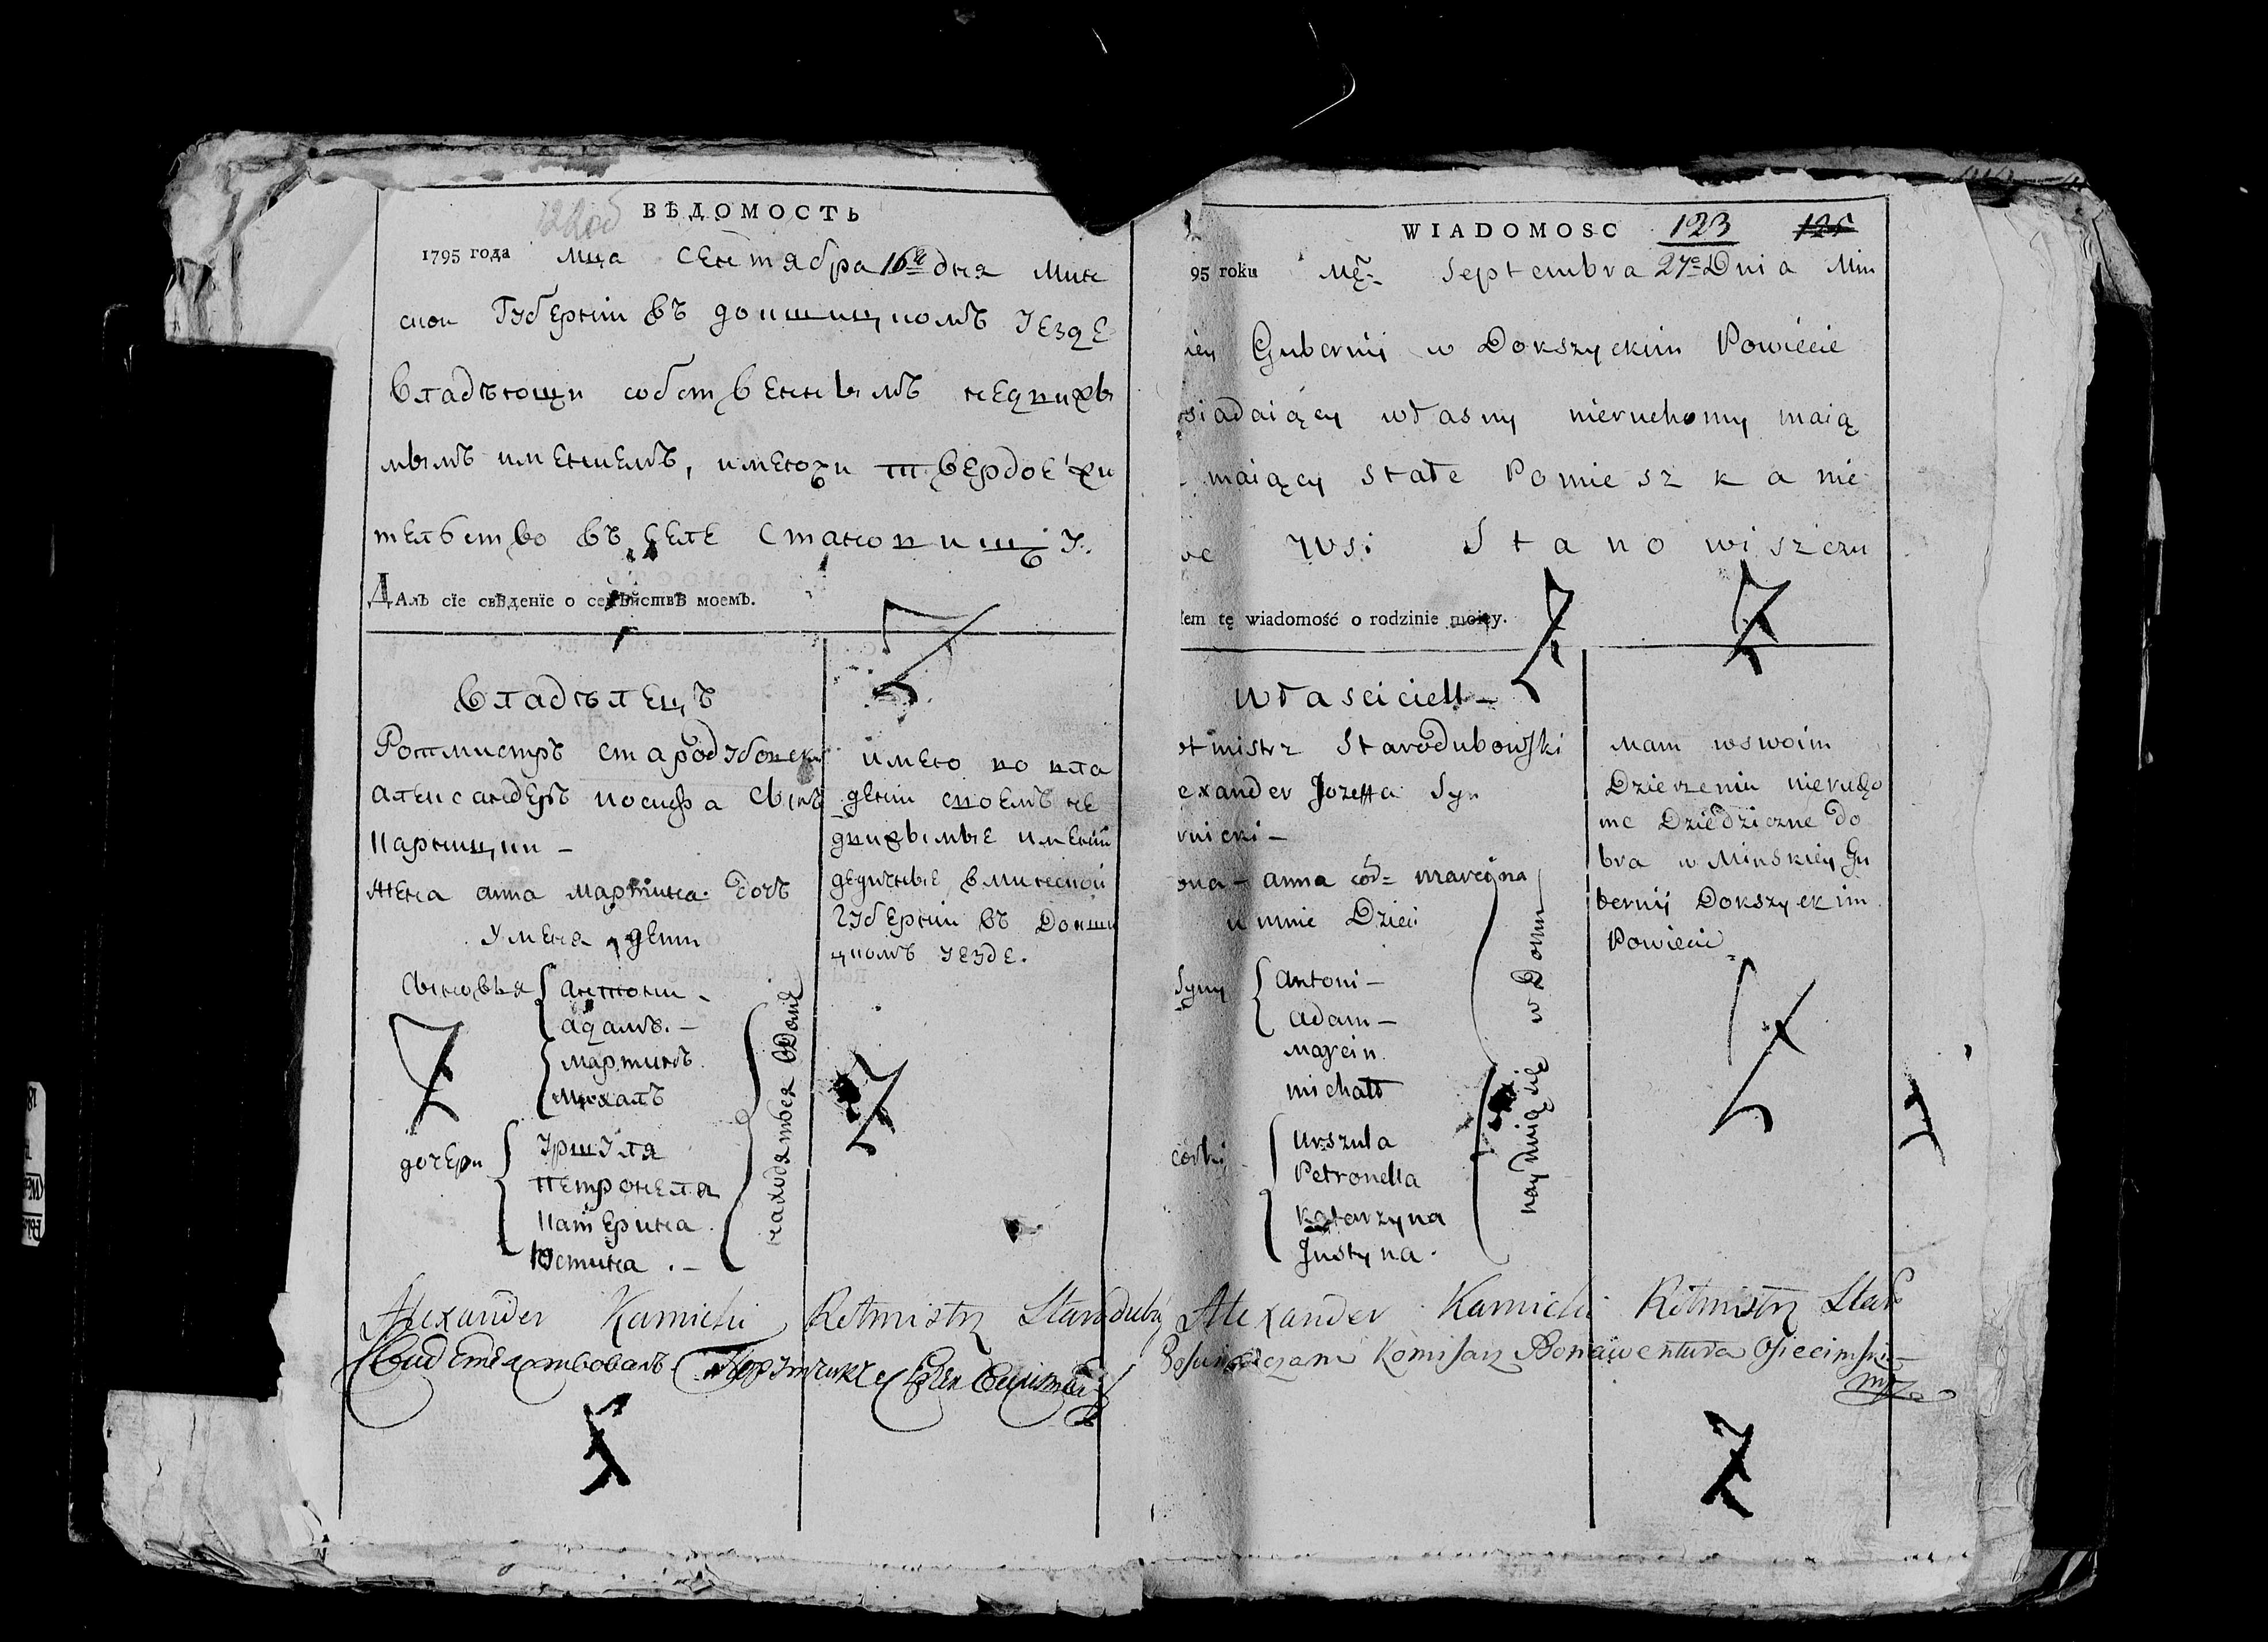 ВѢДОМОСТЬ
1795 года мца сентября 16го дня Мин
ской Губерніи въ докшицкомъ уезде
владѣющи собственнымъ недвижи
мымъ имениемъ, имеющи твердое жи
телство въ селе Становищу.
Далъ сїе свѣденїе о семѣйствѣ моемъ.
владѣлецъ
Ротмистръ стародубовски
александеръ иосифа сынъ
Карницки –
жена анна мартина дочъ
у меня дети
сыновья антони –
адамъ. –
мартинъ
михалъ
дочери уршуля
петронеля
катерина
юстина . –
находятся в доме
имею во вла
дении своемъ не
движымые имении
дедичные в минской
губернии въ Докши
цкомъ уезде.
Alexander Karnicki Rotmistrz Starodubo
Свидетелствовалъ
WIADOMOSC 123 125
95 roku Septembra 27e Dnia Min
iey Gubernij w Dokszyckim Powiecie
osiadaiący własny nieruchomy maią
maiący stałe Pomieszkanie
we wsi Stanowiszczu
łem tę wiadomość o rodzinie moiey.
właściciell –
otmistrz Starodubowski
exander Jozeffa Syn
rnicki –
ona – anna cór= marcina
u mnie Dzieci
Syny Antoni –
Adam –
Marcin
michał
córki Urszula
Petronella
Katarzyna
Justyna.
nayduią się w Domu
Mam w swoim
Dzierzeniu nierucho
me Dziedziczne Do
bra w Minskiey Gu
bernij Dokszyckim
Powiecie
Alexander Karnicki Rotmistrz Staro
Poswiadczam Komisarz Bonawentura Osiecimski
mp